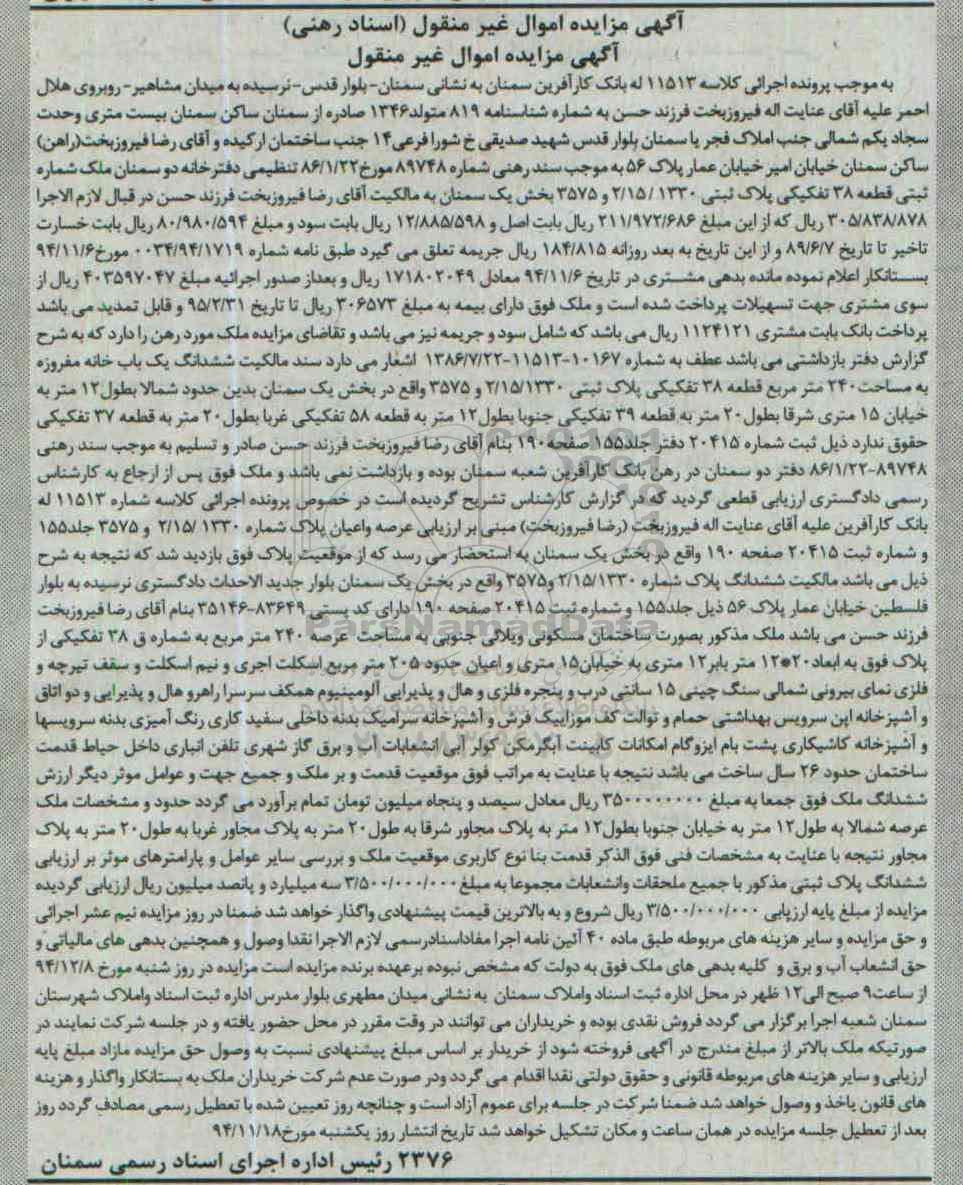 آگهی مزایده اموال غیر منقول (اسناد رهنی)
آگهی مزایده اموال غیر منقول
به موجب پرونده اجرائی کلاسه ۱۱۵۱۳ له بانک کارآفرین سمنان به نشانی سمنان-بلوار قدس-نرسیده به میدان مشاهیر-روبروی هلال
احمر علیه آقای عنایت اله فیروزبخت فرزند حسن به شماره شناسنامه ۸۱۹ متولد۱۳۴۶ صادره از سمنان ساکن سمنان بیست متری وحدت
سجاد یکم شمالی جنب املاک فجر یا سمنان بلوار قدس شهید صدیقی خ شورا فرعی۱۴ جنب ساختمان ارکیده و آقای رضا فیروزبخت(راهن)
ساکن سمنان خیابان امیر خیابان عمار پلاک ۵۶ به موجب سند رهنی شماره ۸۹۷۴۸ مورخ۸۶/۱/۲۲ تنظیمی دفترخانه دو سمنان ملک شماره
ثبتی قطعه ۳۸ تفکیکی پلاک ثبتی ۲/۱۵/۱۳۳۰ و ۳۵۷۵ بخش یک سمنان به مالکیت آقای رضا فیروزبخت فرزند حسن در قبال لازم الاجرا
۳۰۵/۸۳۸/۸۷۸ ریال که از این مبلغ ۲۱۱/۹۷۲/۶۸۶ ریال بابت اصل و ۱۲/۸۸۵/۵۹۸ ریال بابت سود و مبلغ ۸۰/۹۸۰/۵۹۴ ریال بابت خسارت
تاخیر تا تاریخ ۸۹/۶/۷ و از این تاریخ به بعد روزانه ۱۸۴/۸۱۵ ریال جریمه تعلق می گیرد طبق نامه شماره ۰۰۳۴/۹۴/۱۷۱۹ مورخ۹۴/۱۱/۶
بستانکار اعلام نموده مانده بدهی مشتری در تاریخ ۹۴/۱۱/۶ معادل ۱۷۱۸۰۲۰۴۹ ریال و بعداز صدور اجرائیه مبلغ ۴۰۳۵۹۷۰۴۷ ریال از
سوی مشتری جهت تسهیلات پرداخت شده است و ملک فوق دارای بیمه به مبلغ ۳۰۶۵۷۳ ریال تا تاریخ ۹۵/۲/۳۱ و قابل تمدید می باشد
پرداخت بانک بابت مشتری ۱۱۲۴۱۲۱ ریال می باشد که شامل سود و جریمه نیز می باشد و تقاضای مزایده ملک مورد رهن را دارد که به شرح
گزارش دفتر بازداشتی می باشد عطف به شماره ۱۰۱۶۷-۱۱۵۱۳-۱۳۸۶/۷/۲۲ اشعار می دارد سند مالکیت ششدانگ یک باب خانه مفروزه
به مساحت۲۴۰ متر مربع قطعه ۳۸ تفکیکی پلاک ثبتی ۲/۱۵/۱۳۳۰ و ۳۵۷۵ واقع در بخش یک سمنان بدین حدود شمالا بطول۱۲ متر به
خیابان ۱۵ متری شرقا بطول۲۰ متر به قطعه ۳۹ تفکیکی جنوبا بطول۱۲ متر به قطعه ۵۸ تفکیکی غربا بطول۲۰ متر به قطعه ۳۷ تفکیکی
حقوق ندارد ذیل ثبت شماره ۲۰۴۱۵ دفتر جلد۱۵۵ صفحه۱۹۰ بنام آقای رضا فیروزبخت فرزند حسن صادر و تسلیم به موجب سند رهنی
۸۶/۱/۲۲-۸۹۷۴۸ دفتر دو سمنان در رهن بانک کارآفرین شعبه سمنان بوده و بازداشت نمی باشد و ملک فوق پس از ارجاع به کارشناس
رسمی دادگستری ارزیابی قطعی گردید که در گزارش کارشناس تشریح گردیده است در خصوص پرونده اجرائی کلاسه شماره ۱۱۵۱۳ له
بانک کارآفرین علیه آقای عنایت اله فیروزبخت (رضا فیروزبخت) مبنی بر ارزیابی عرصه واعیان پلاک شماره ۲/۱۵/۱۳۳۰ و ۳۵۷۵ جلد۱۵۵
و شماره ثبت ۲۰۴۱۵ صفحه ۱۹۰ واقع در بخش یک سمنان به استحضار می رسد که از موقعیت پلاک فوق بازدید شد که نتیجه به شرح
ذیل می باشد مالکیت ششدانگ پلاک شماره ۲/۱۵/۱۳۳۰ و۳۵۷۵ واقع در بخش یک سمنان بلوار جدید الاحداث دادگستری نرسیده به بلوار
فلسطین خیابان عمار پلاک ۵۶ ذیل جلد۱۵۵ و شماره ثبت ۲۰۴۱۵ صفحه ۱۹۰ دارای کد پستی ۸۳۶۴۹-۳۵۱۴۶ بنام آقای رضا فیروزبخت
فرزند حسن می باشد ملک مذکور بصورت ساختمان مسکونی ویلائی جنوبی به مساحت عرصه ۲۴۰ متر مربع به شماره ق ۳۸ تفکیکی از
پلاک فوق به ابعاد۲۰*۱۲ متر بابر۱۲ متری به خیابان۱۵ متری و اعیان حدود ۲۰۵ متر مربع اسکلت اجری و نیم اسکلت و سقف تیرچه و
فلزی نمای بیرونی شمالی سنگ چینی ۱۵ سانتی درب و پنجره فلزی و هال و پذیرایی آلومینیوم همکف سرسرا راهرو هال و پذیرایی و دو اتاق
و آشپزخانه اپن سرویس بهداشتی حمام و توالت کف موزاییک فرش و آشپزخانه سرامیک بدنه داخلی سفید کاری رنگ آمیزی بدنه سرویسها
و آشپزخانه کاشیکاری پشت بام ایزوگام امکانات کابینت آبگرمکن کولر آبی انشعابات آب و برق گاز شهری تلفن انباری داخل حیاط قدمت
ساختمان حدود ۲۶ سال ساخت می باشد نتیجه با عنایت به مراتب فوق موقعیت قدمت و بر ملک و جمیع جهت و عوامل موثر دیگر ارزش
ششدانگ ملک فوق جمعا به مبلغ ۳۵۰۰۰۰۰۰۰۰ ریال معادل سیصد و پنجاه میلیون تومان تمام برآورد می گردد حدود و مشخصات ملک
عرصه شمالا به طول۱۲ متر به خیابان جنوبا بطول۱۲ متر به پلاک مجاور شرقا به طول۲۰ متر به پلاک مجاور غربا به طول۲۰ متر به پلاک
مجاور نتیجه با عنایت به مشخصات فنی فوق الذکر قدمت بنا نوع کاربری موقعیت ملک و بررسی سایر عوامل و پارامترهای موثر بر ارزیابی
ششدانگ پلاک ثبتی مذکور با جمیع ملحقات وانشعابات مجموعا به مبلغ ۳/۵۰۰/۰۰۰/۰۰۰ سه میلیارد و پانصد میلیون ریال ارزیابی گردیده
مزایده از مبلغ پایه ارزیابی ۳/۵۰۰/۰۰۰/۰۰۰ ریال شروع و به بالاترین قیمت پیشنهادی واگذار خواهد شد ضمنا در روز مزایده نیم عشر اجرائی
و حق مزایده و سایر هزینه های مربوطه طبق ماده ۴۰ آئین نامه اجرا مفاداسنادرسمی لازم الاجرا نقدا وصول و همچنین بدهی های مالیاتی و
حق انشعاب آب و برق و کلیه بدهی های ملک فوق به دولت که مشخص نبوده برعهده برنده مزایده است مزایده در روز شنبه مورخ ۹۴/۱۲/۸
از ساعت۹ صبح الی۱۲ ظهر در محل اداره ثبت اسناد واملاک سمنان به نشانی میدان مطهری بلوار مدرس اداره ثبت اسناد واملاک شهرستان
سمنان شعبه اجرا برگزار می گردد فروش نقدی بوده و خریداران می توانند در وقت مقرر در محل حضور یافته و در جلسه شرکت نمایند در
صورتیکه ملک بالاتر از مبلغ مندرج در آگهی فروخته شود از خریدار بر اساس مبلغ پیشنهادی نسبت به وصول حق مزایده مازاد مبلغ پایه
ارزیابی و سایر هزینه های مربوطه قانونی و حقوق دولتی نقدا اقدام می گردد ودر صورت عدم شرکت خریداران ملک به بستانکار واگذار و هزینه
های قانون یاخذ و وصول خواهد شد ضمنا شرکت در جلسه برای عموم آزاد است و چنانچه روز تعیین شده با تعطیل رسمی مصادف گردد روز
بعد از تعطیل جلسه مزایده در همان ساعت و مکان تشکیل خواهد شد تاریخ انتشار روز یکشنبه مورخ۹۴/۱۱/۱۸
۲۳۷۶ رئیس اداره اجرای اسناد رسمی سمنان
ParsNamadData